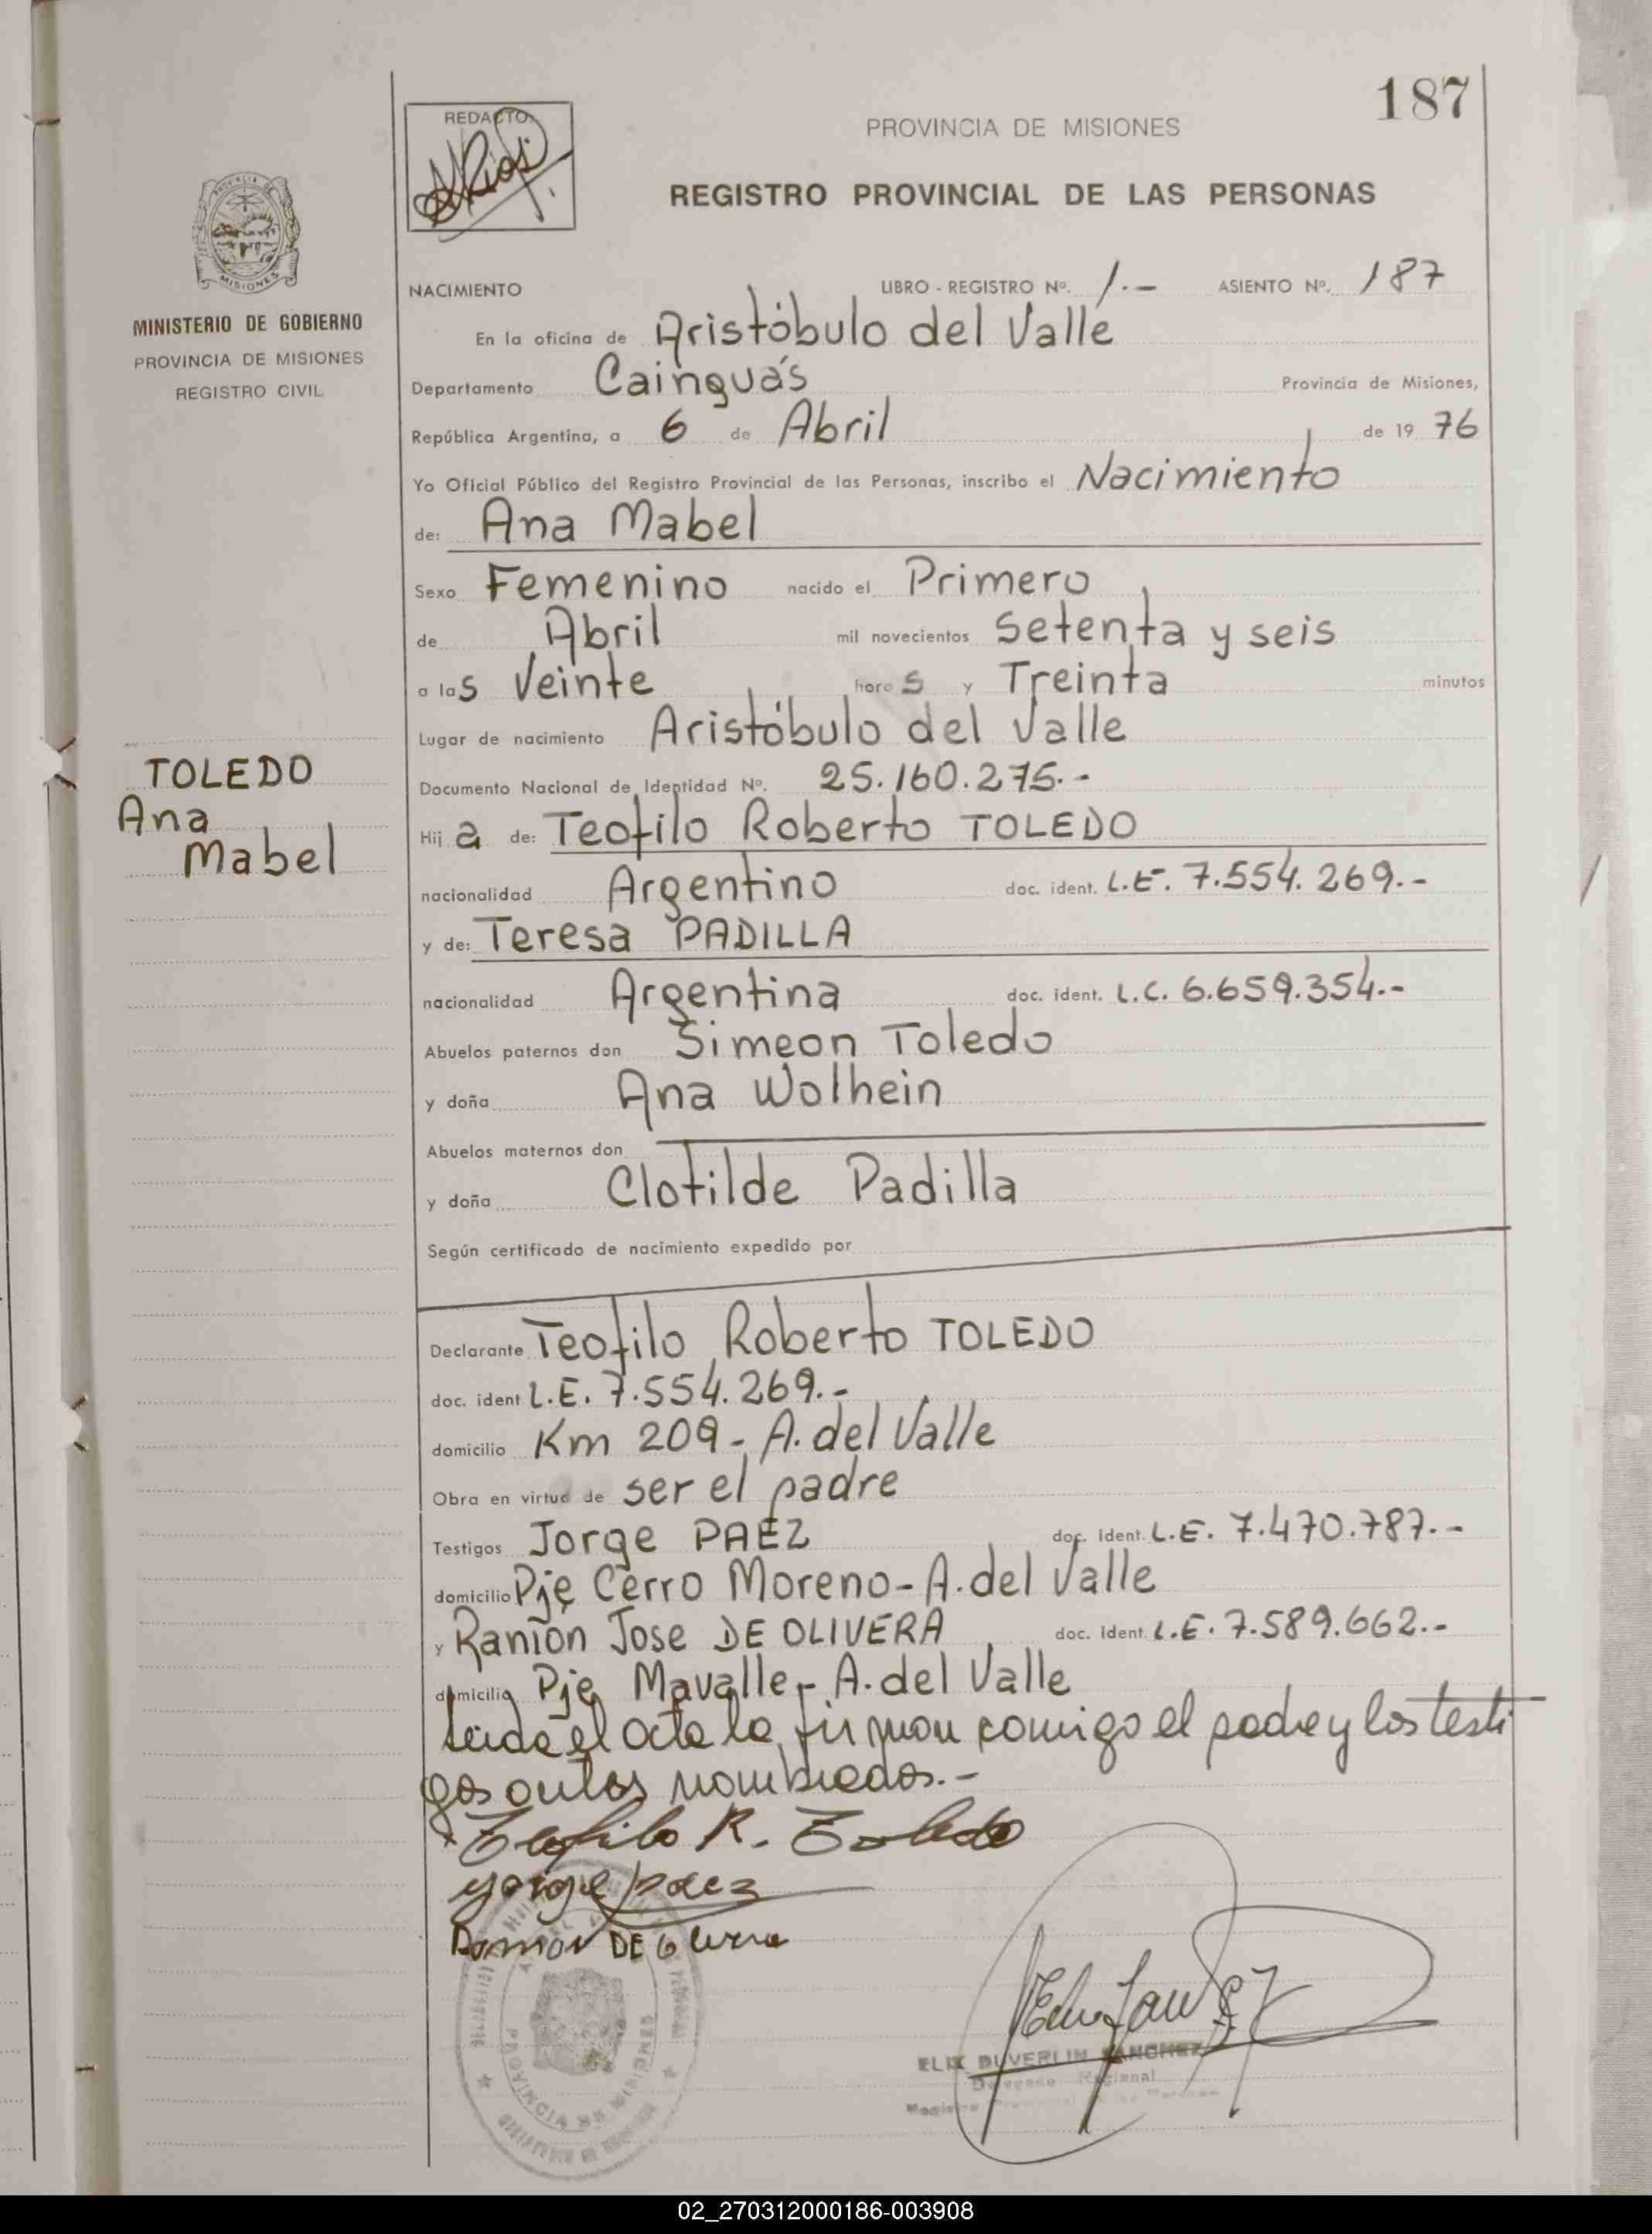 187
REDACTO:
PROVINCIA DE MISIONES
REGISTRO PROVINCIAL DE LAS PERSONAS
MISIONES
MINISTERIO DE GOBIERNO
PROVINCIA DE MISIONES
REGISTRO CIVIL
NACIMIENTO LIBRO - REGISTRO Nº. 1.- ASIENTO Nº. 187
En la oficina de Aristóbulo del Valle
Departamento Cainguás Provincia de Misiones,
República Argentina, a 6 de Abril de 1976
Yo Oficial Público del Registro Provincial de las Personas, inscribo el Nacimiento
de: Ana Mabel
Sexo Femenino nacido el Primero
de Abril mil novecientos setenta y seis
a las Veinte horas y Treinta minutos
Lugar de nacimiento Aristóbulo del Valle
Documento Nacional de Identidad Nº. 25.160.275.-
TOLEDO
Ana
Mabel
Hija de: Teofilo Roberto TOLEDO
nacionalidad Argentino doc. ident. L.E. 7.554.269.-
y de: Teresa PADILLA
nacionalidad Argentina doc. ident. L.C. 6.659.354.-
Abuelos paternos don Simeon Toledo
y doña Ana Wolhein
Abuelos maternos don
y doña Clotilde Padilla
Según certificado de nacimiento expedido por
Declarante Teofilo Roberto TOLEDO
doc. ident L.E. 7.554.269.-
domicilio Km 209 - A. del Valle
Obra en virtud de ser el padre
Testigos Jorge PAEZ doc. ident. L.E. 7.470.787.-
domicilio Pje Cerro Moreno - A. del Valle
y Ramón Jose DE OLIVERA, doc. ident. L.E. 7.589.662.-
domicilio Pje Mavalle - A. del Valle
Leida el acta la firman comigo el padre y los testi
gos antes nombrados.-
Teofilo R. Toledo
Jorge Paez
Ramón DE Olivera
PROVINCIA DE MISIONES
ELIX DUVERLIN SANCHEZ
Delegado Regional
02_270312000186-003908